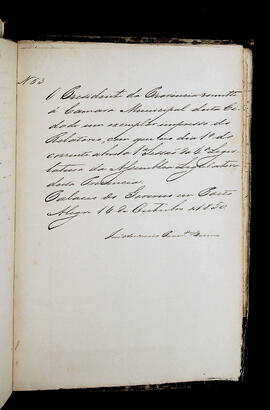 Nº 53
O Presidente da Provincia remette
á Camara Municipal desta Ci-
dade um exemplar impresso do
Relatorio, com que no dia 1º do
corrente abrio a 1ª Sessão da 4ª Legis-
latura da Assemblea Legislativa
desta Provincia.
Palacio do Governo em Porto
Alegre 14 de Outubro de 1850